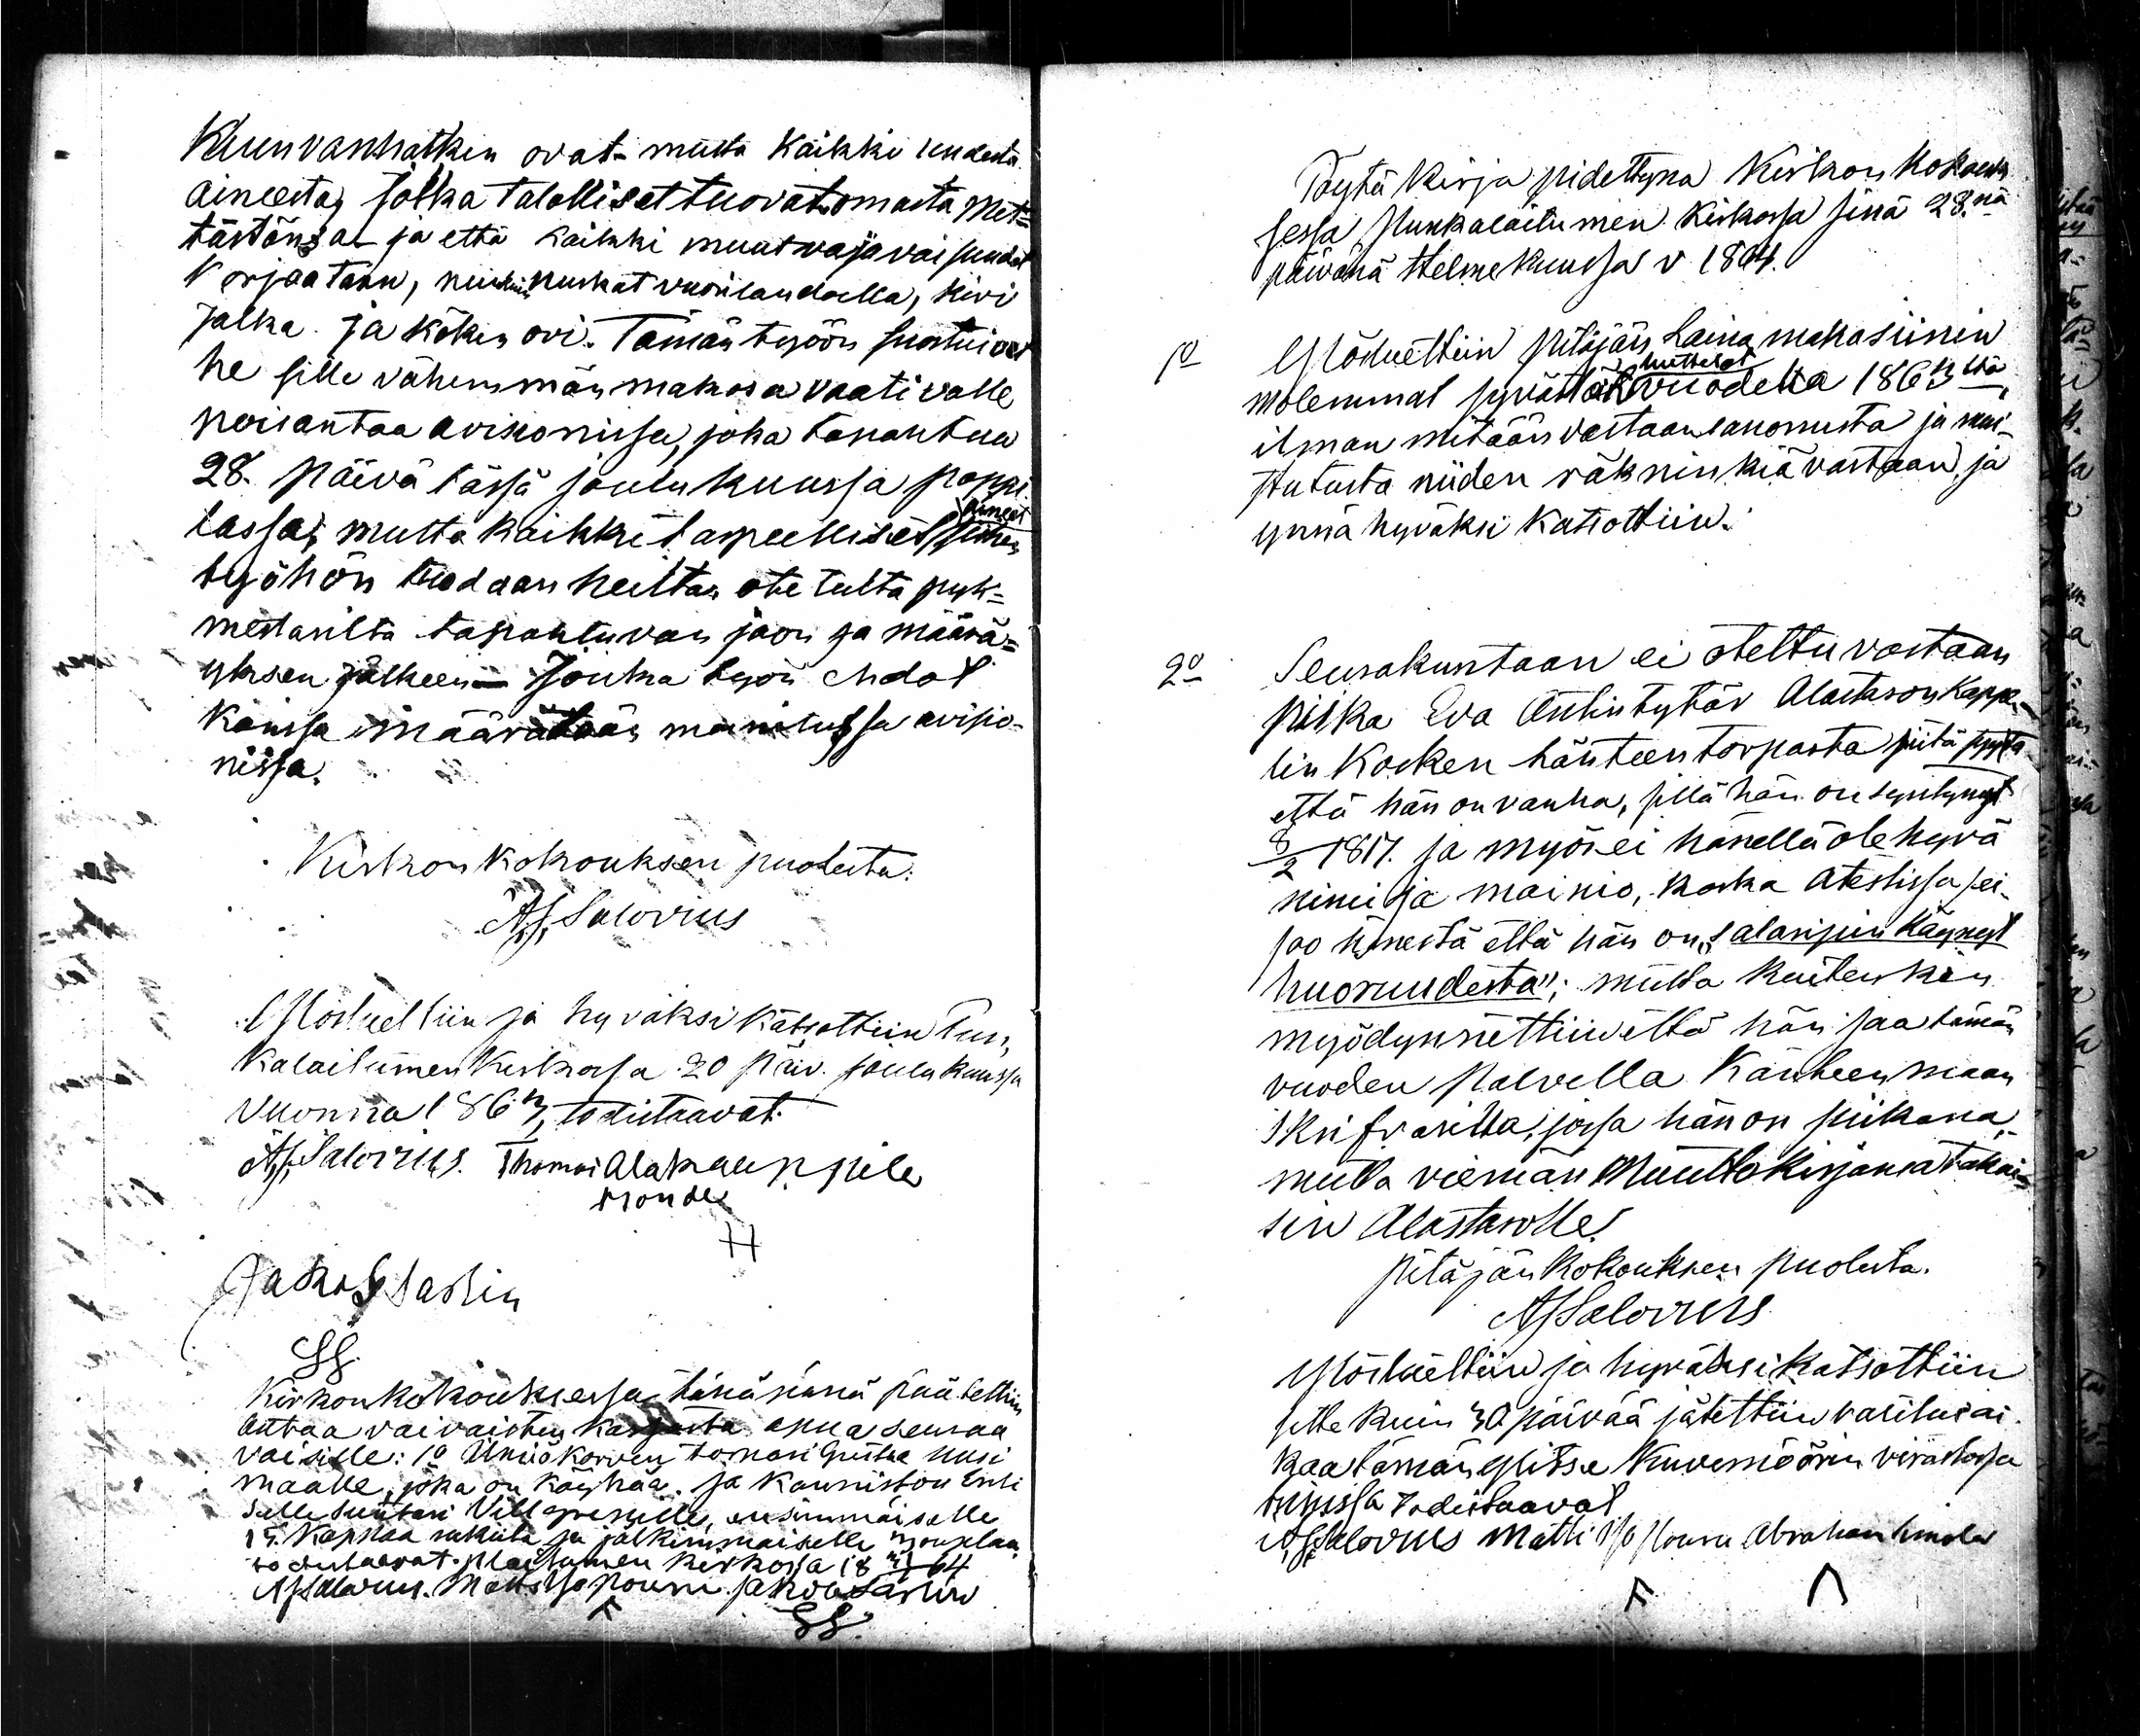 Kuin vanhatkin ovat mutta kaikki uudesta
aineesta, jotka talolliset tuovat omasta met=
tästänsä ja että kaikki muut vajavaisuudet
korjaatann, nurkat vuorilaudalla, kivi
jalka ja kökin ovi. Tämän työön suostuivat
he sille vähemmän maksoa vaativalle
poisantaa avisionissa, joka tapahtuu
28. päivä tässä joulukuussa pappi
lassa; mutta kaikki tarpeelliset aineet siihen
työhön tuodaan heiltä, ote tulta pyk=
mestarilta tapahtuvan jaon ja määrä=
yksen jälkeen — Jonka työn ehdot
kanssa määrätään mainitussa avisio-
nissa.
Kirkon Kokouksen puolesta.
AJ Salovius
Ylösluettiin ja hyväksi katsottiin Pun,
kalaitumen Kirkossa 20 päiv. joulukuussa
Vuonna 1863, todistaavat
AJ Salovius. Thomas Alakauppila
H
Jakob Sarlin
SS.
Kirkonkokouksessa tänäpänä päätettiin
Antaa vaivaisten kassasta apua seuraa
vaisille: 1o Uusi
maalle, joka on köyhää. ja Kanniston
ensimmäiselle
15. Kappaa rukiita ja jälkimmäiselle
todistaavat. Plaitumen kirkossa 18 64
AJ Salovius. Matts Yso Pouru Jakob Sarlin
SS.
Pöytä Kirja pidettynä Kirkon Kokouk
sessa Punkalaitumen Kirkossa sinä 28.nä
päivänä Helmekuussa v 1864.
1o Ylösluettiin pitäjän Laina makasiinin
molemmat jyvästöt luettelot vuodelta 1863 lta
ilman mitään vastaansanomusta ja mui-
stutusta niiden räkninkiä vastaan, ja
ynnä hyväksi katsottiin.
2o Seurakuntaan ei otettu vastaan
piika Eva Antintytär Alastaron Kappe-
lin Kosken hänteen torpasta siitä syystä
että hän on vanha, sillä hän on syntynyt
8/2 1817. ja myös ei hänellä ole hyvä
nimi ja mainio, koska Atestissa sei-
soo hänestä että hän on „salaripin käynyt
huoruudesta"; mutta kuitenkin
myödynnettiin että hän saa tämän
vuoden palvella Känteenmaan
Skrifvarilla, jossa hän on piikana,
mutta viemän Muuttokirjansa takai=
sin Alastarolle.
Pitäjän Kokouksen puolesta.
AJ Salovius
Ylösluettiin ja hyväksi katsottiin
sitte kuin 30 päivää jätettiin valitusai
kaa tämän ylitse Kuvernöörin virastossa
Turussa Todistaavat
AJ Salovius Matti Yso Pouru Abraham Simola